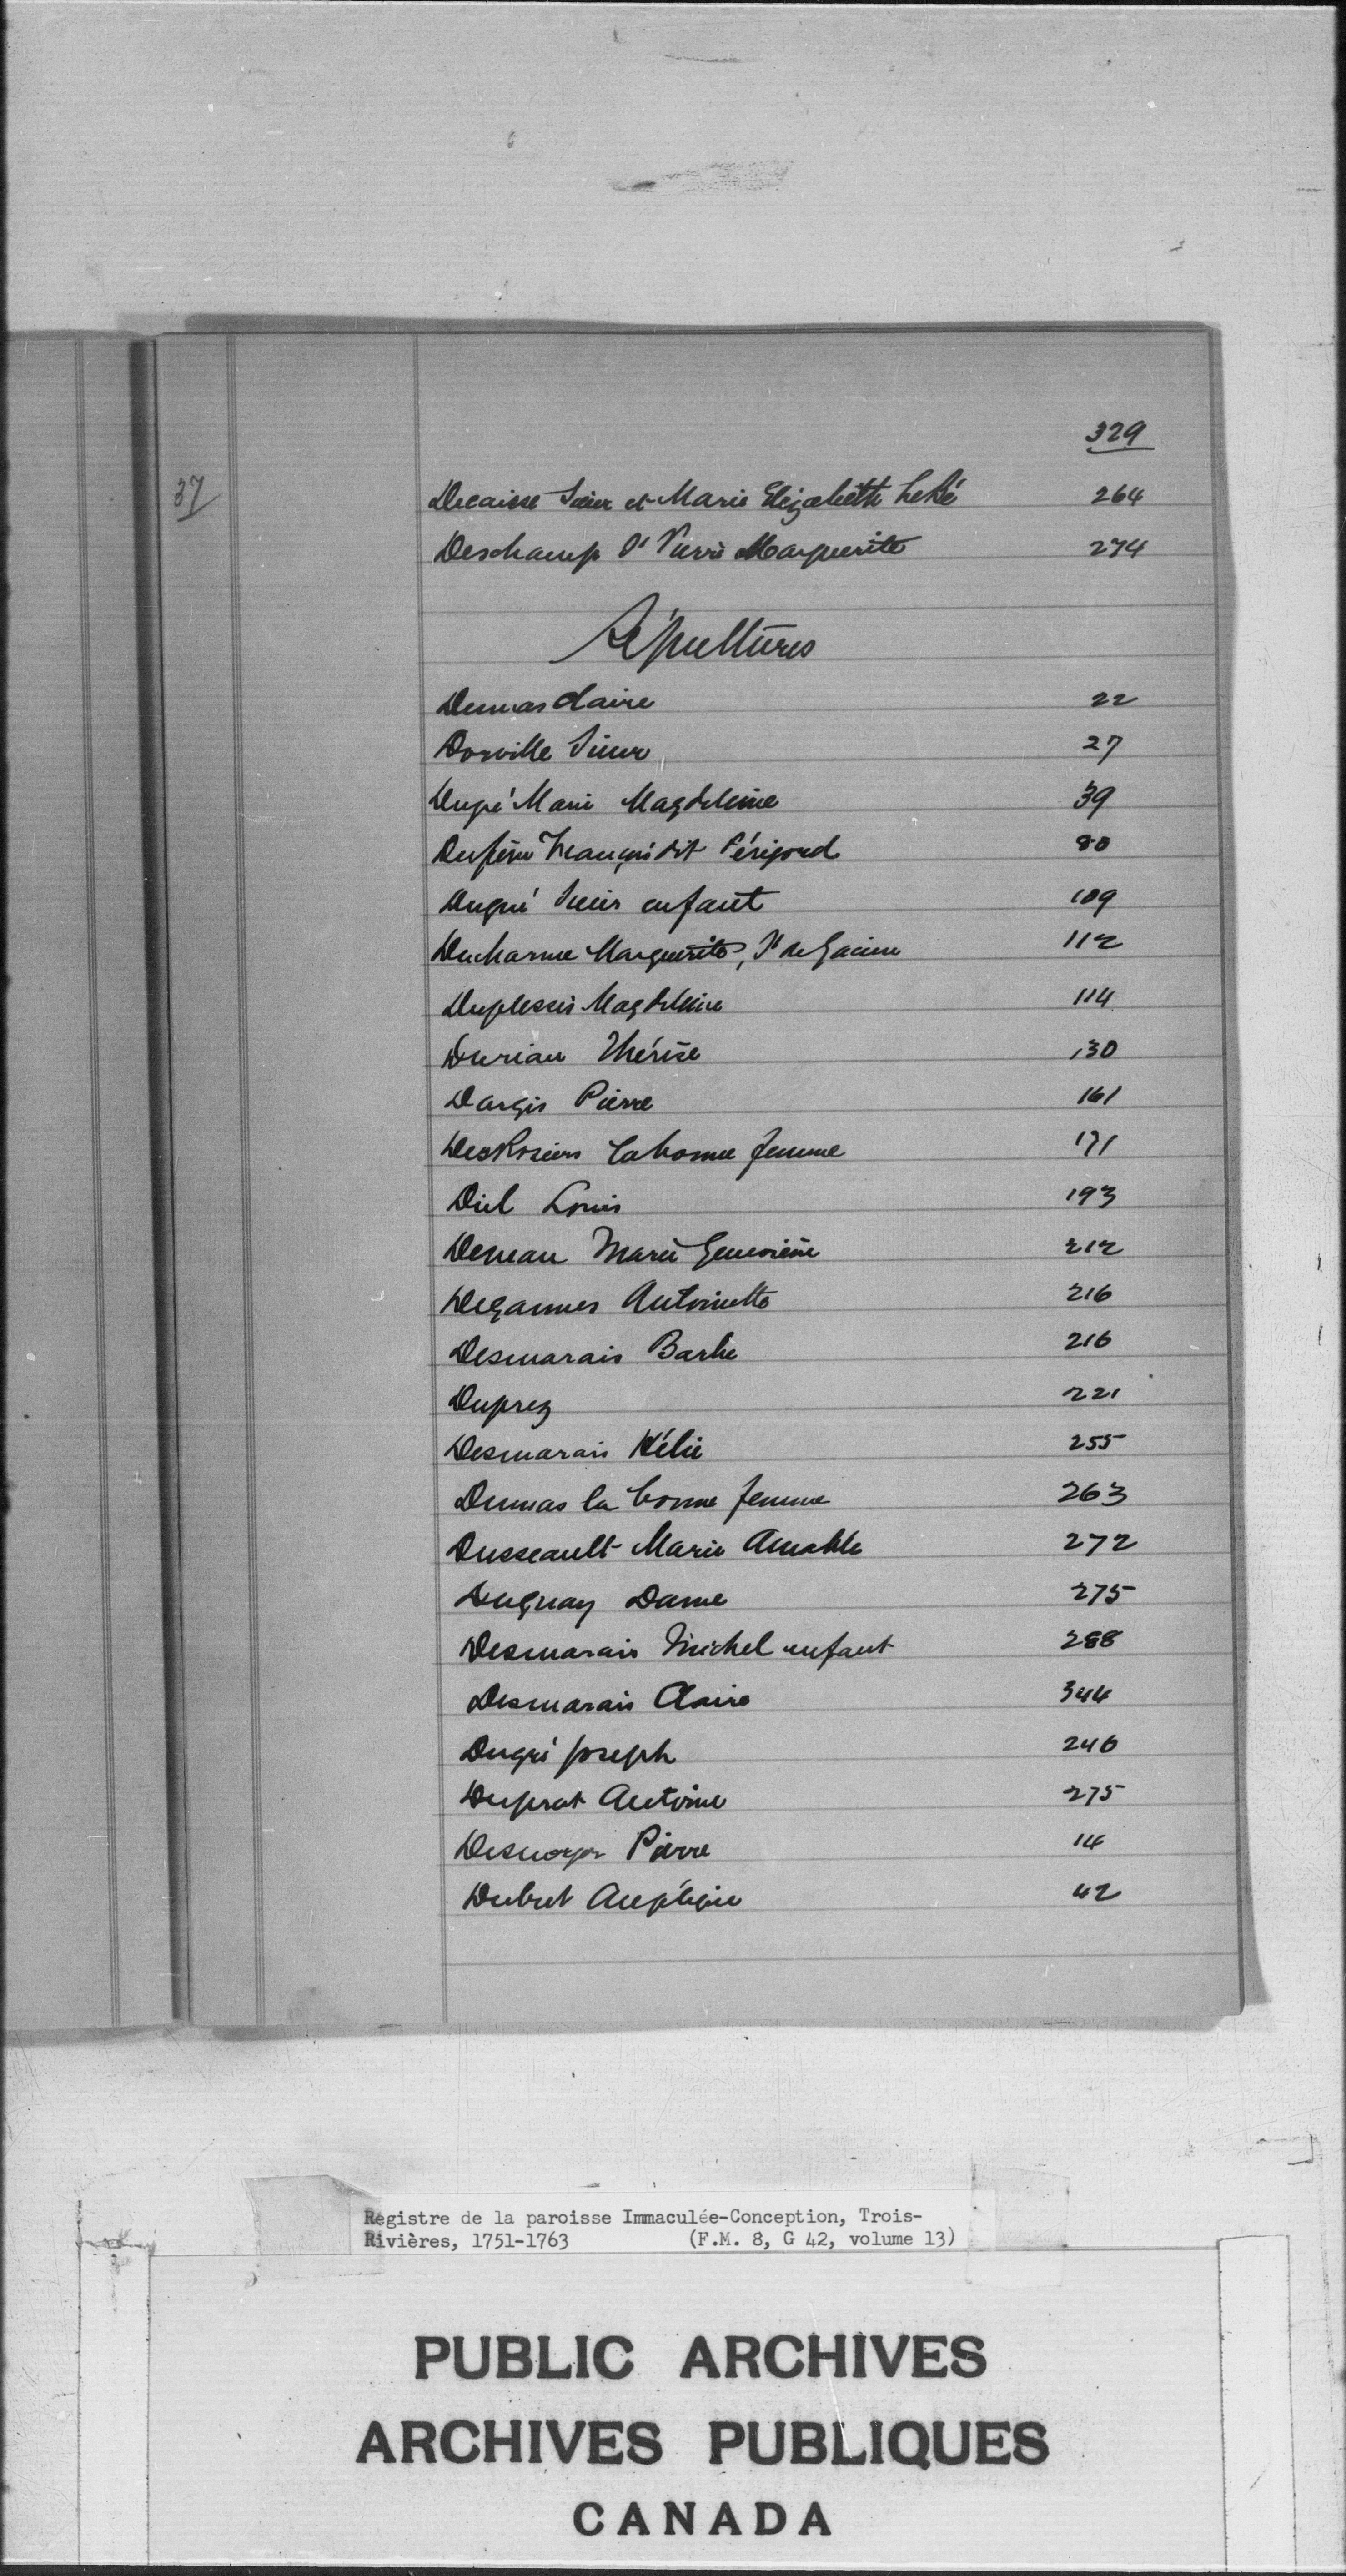 329
37
Decaisse Sieur et Marie Elizabeth LeKé 264
Deschamp dt Pierre Marguerite 274
Sépultures
Dumas Claire 22
Dorville Sieur 27
Dupé Marie Magdeleine 39
François dit Périgord 80
Dugré Sieur enfant 109
Ducharme Marguerite, 112
Duplessis Magdeleine 114
Duriau Thérèse 130
Dargis Pierre 161
DesRosiers la bonne femme 171
Diel Louis 193
Deneau Marie Geneviève 212
DeGannes Antoinette 216
Desmarais Barbe 216
Duprez 221
Desmarais Hélie 255
Dumas la bonne femme 263
Dusseault Marie Amable 272
Duguay Dame 275
Desmarais Michel enfant 288
Desmarais Claire 344
Dugré Joseph 246
Duprat Antoine 275
Desnoyer Pierre 14
Dubret 42
Registre de la paroisse Immaculée-Conception, Trois-
Rivières, 1751-1763 (F.M. 8, G 42, volume 13)
PUBLIC ARCHIVES
ARCHIVES PUBLIQUES
CANADA